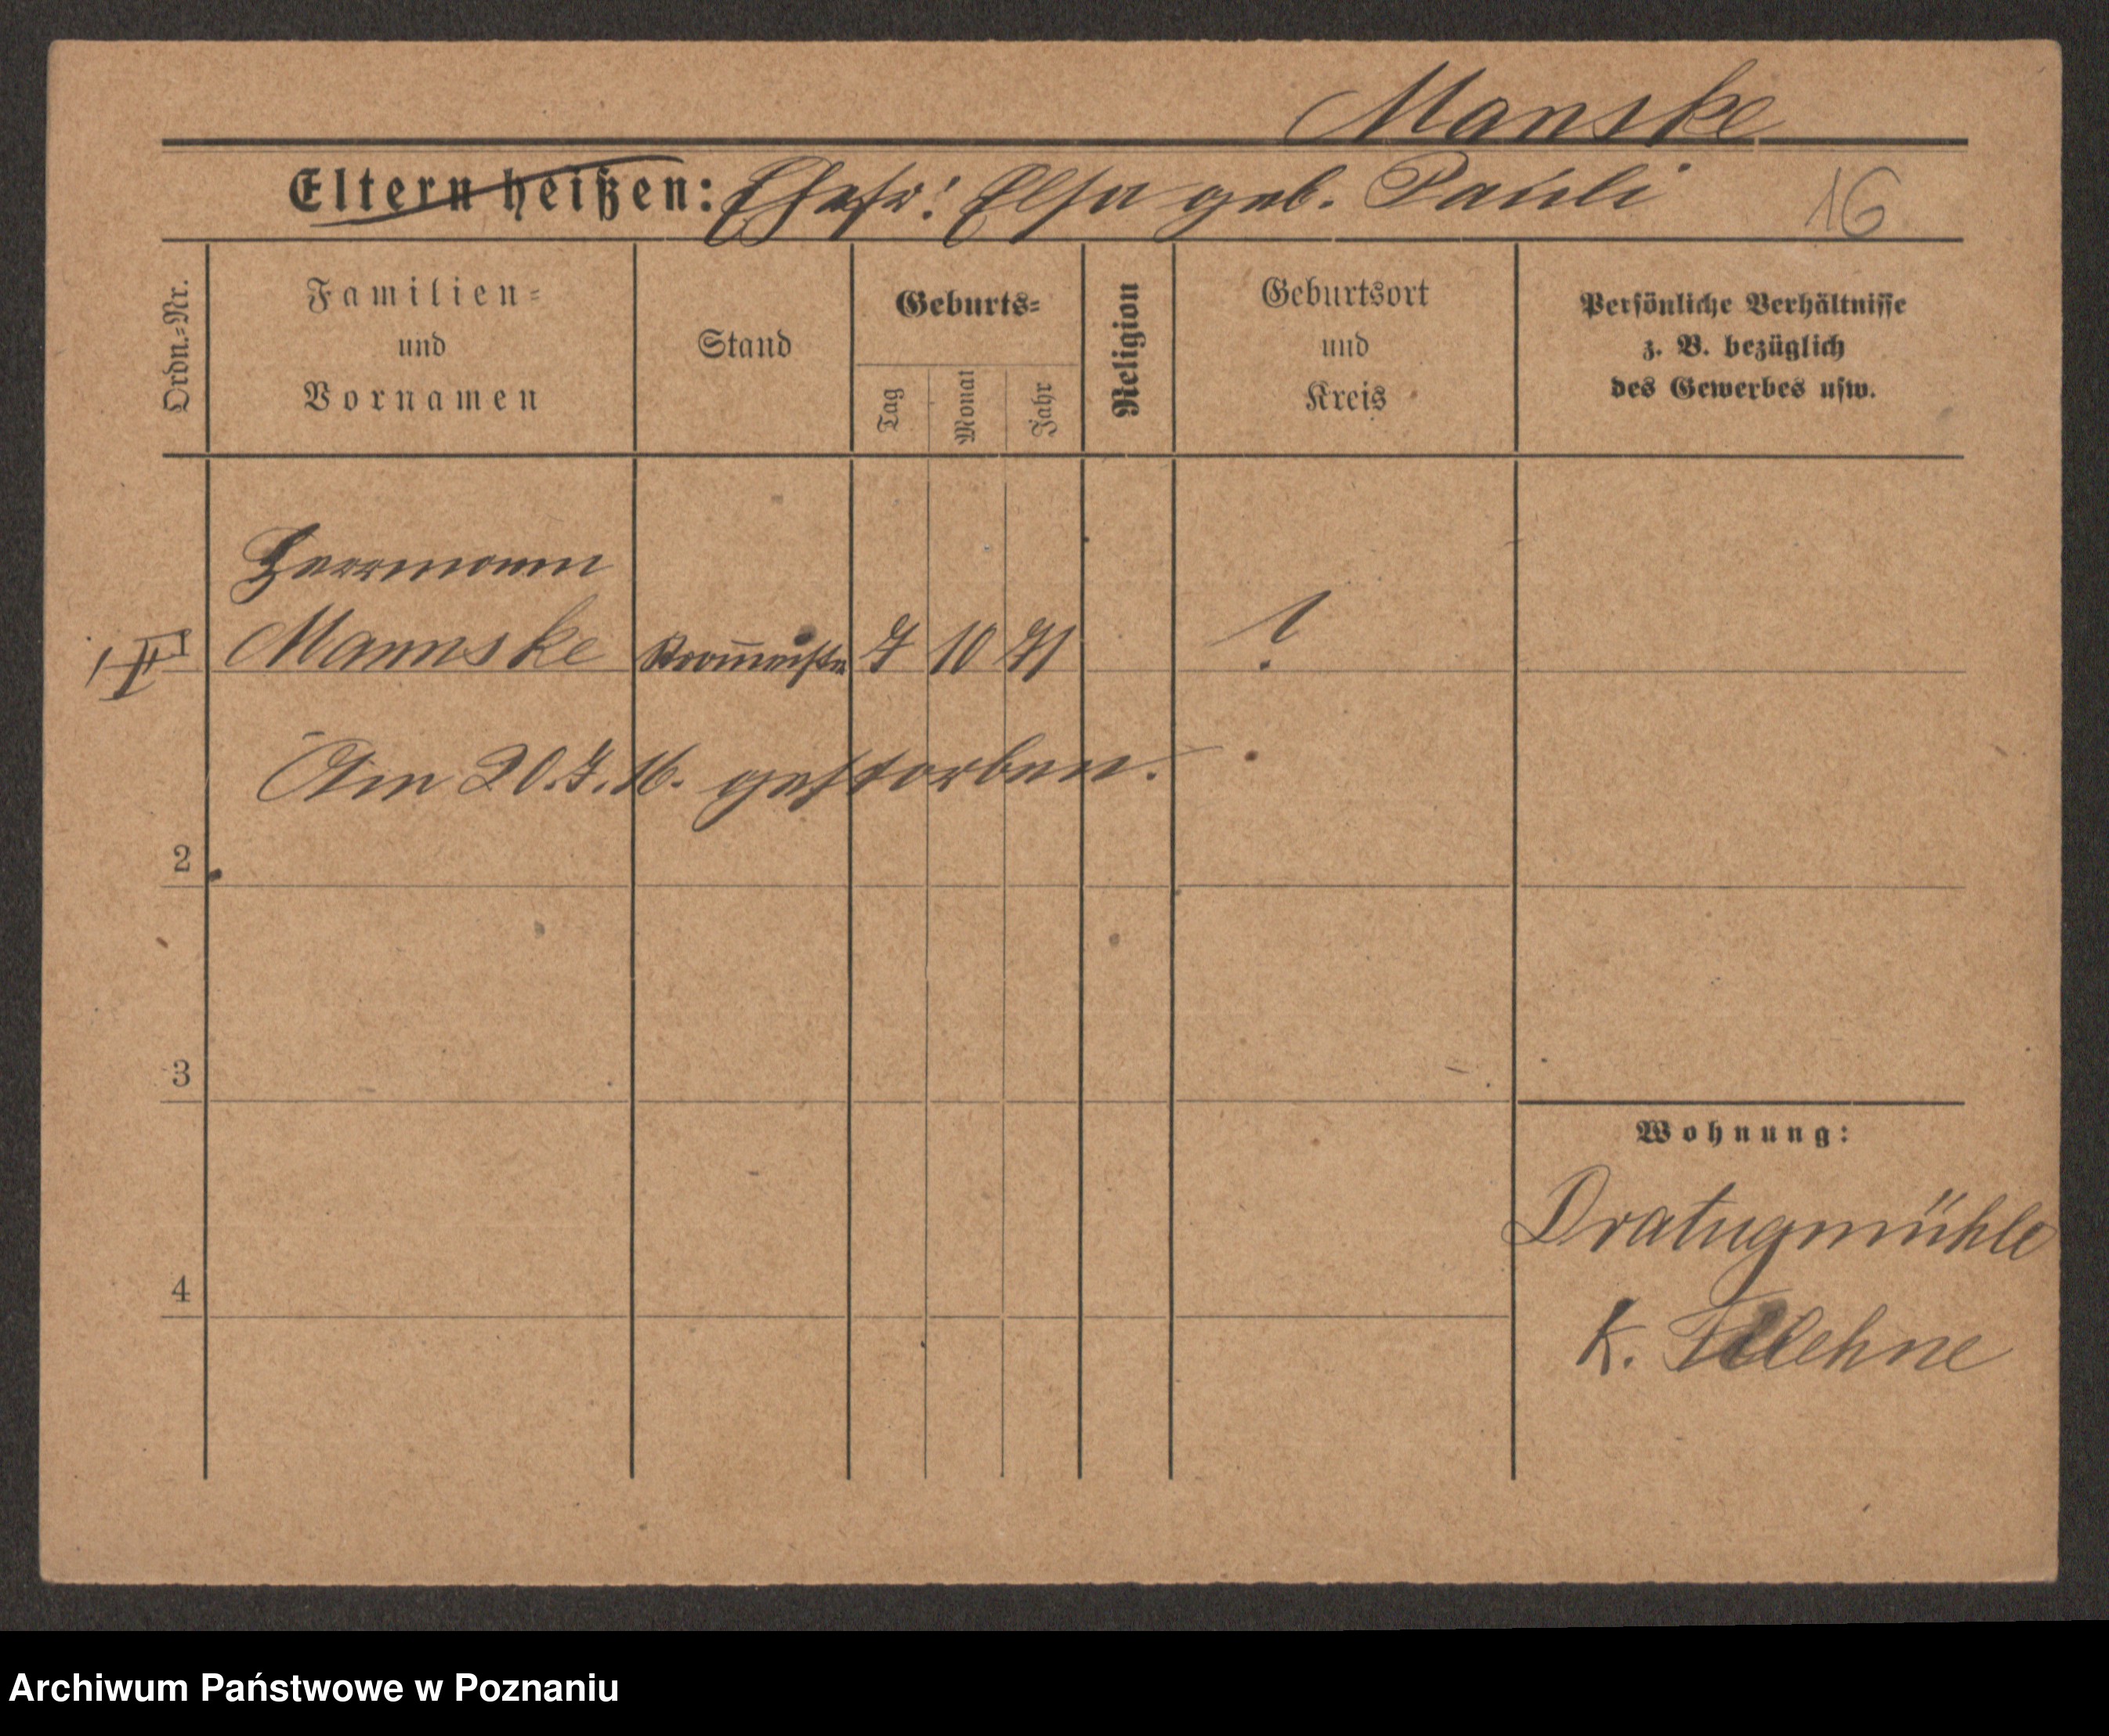 Manske
Eltern heißen: Ehefr: Elsa geb. Pauli 16
Ordn.-Nr.
Familien-
und
Vornamen
Stand
Geburts-
Tag
Monat
Jahr
Religion
Geburtsort
und
Kreis
Persönliche Verhältnisse
z. B. bezüglich
des Gewerbes usw.
Herrmann
1 Mannske 7 10 71 ?
Am 20.7.16. gestorben.
2
3
4
Wohnung:
Dratzigmühle
K. Filehne
Archiwum Państwowe w Poznaniu